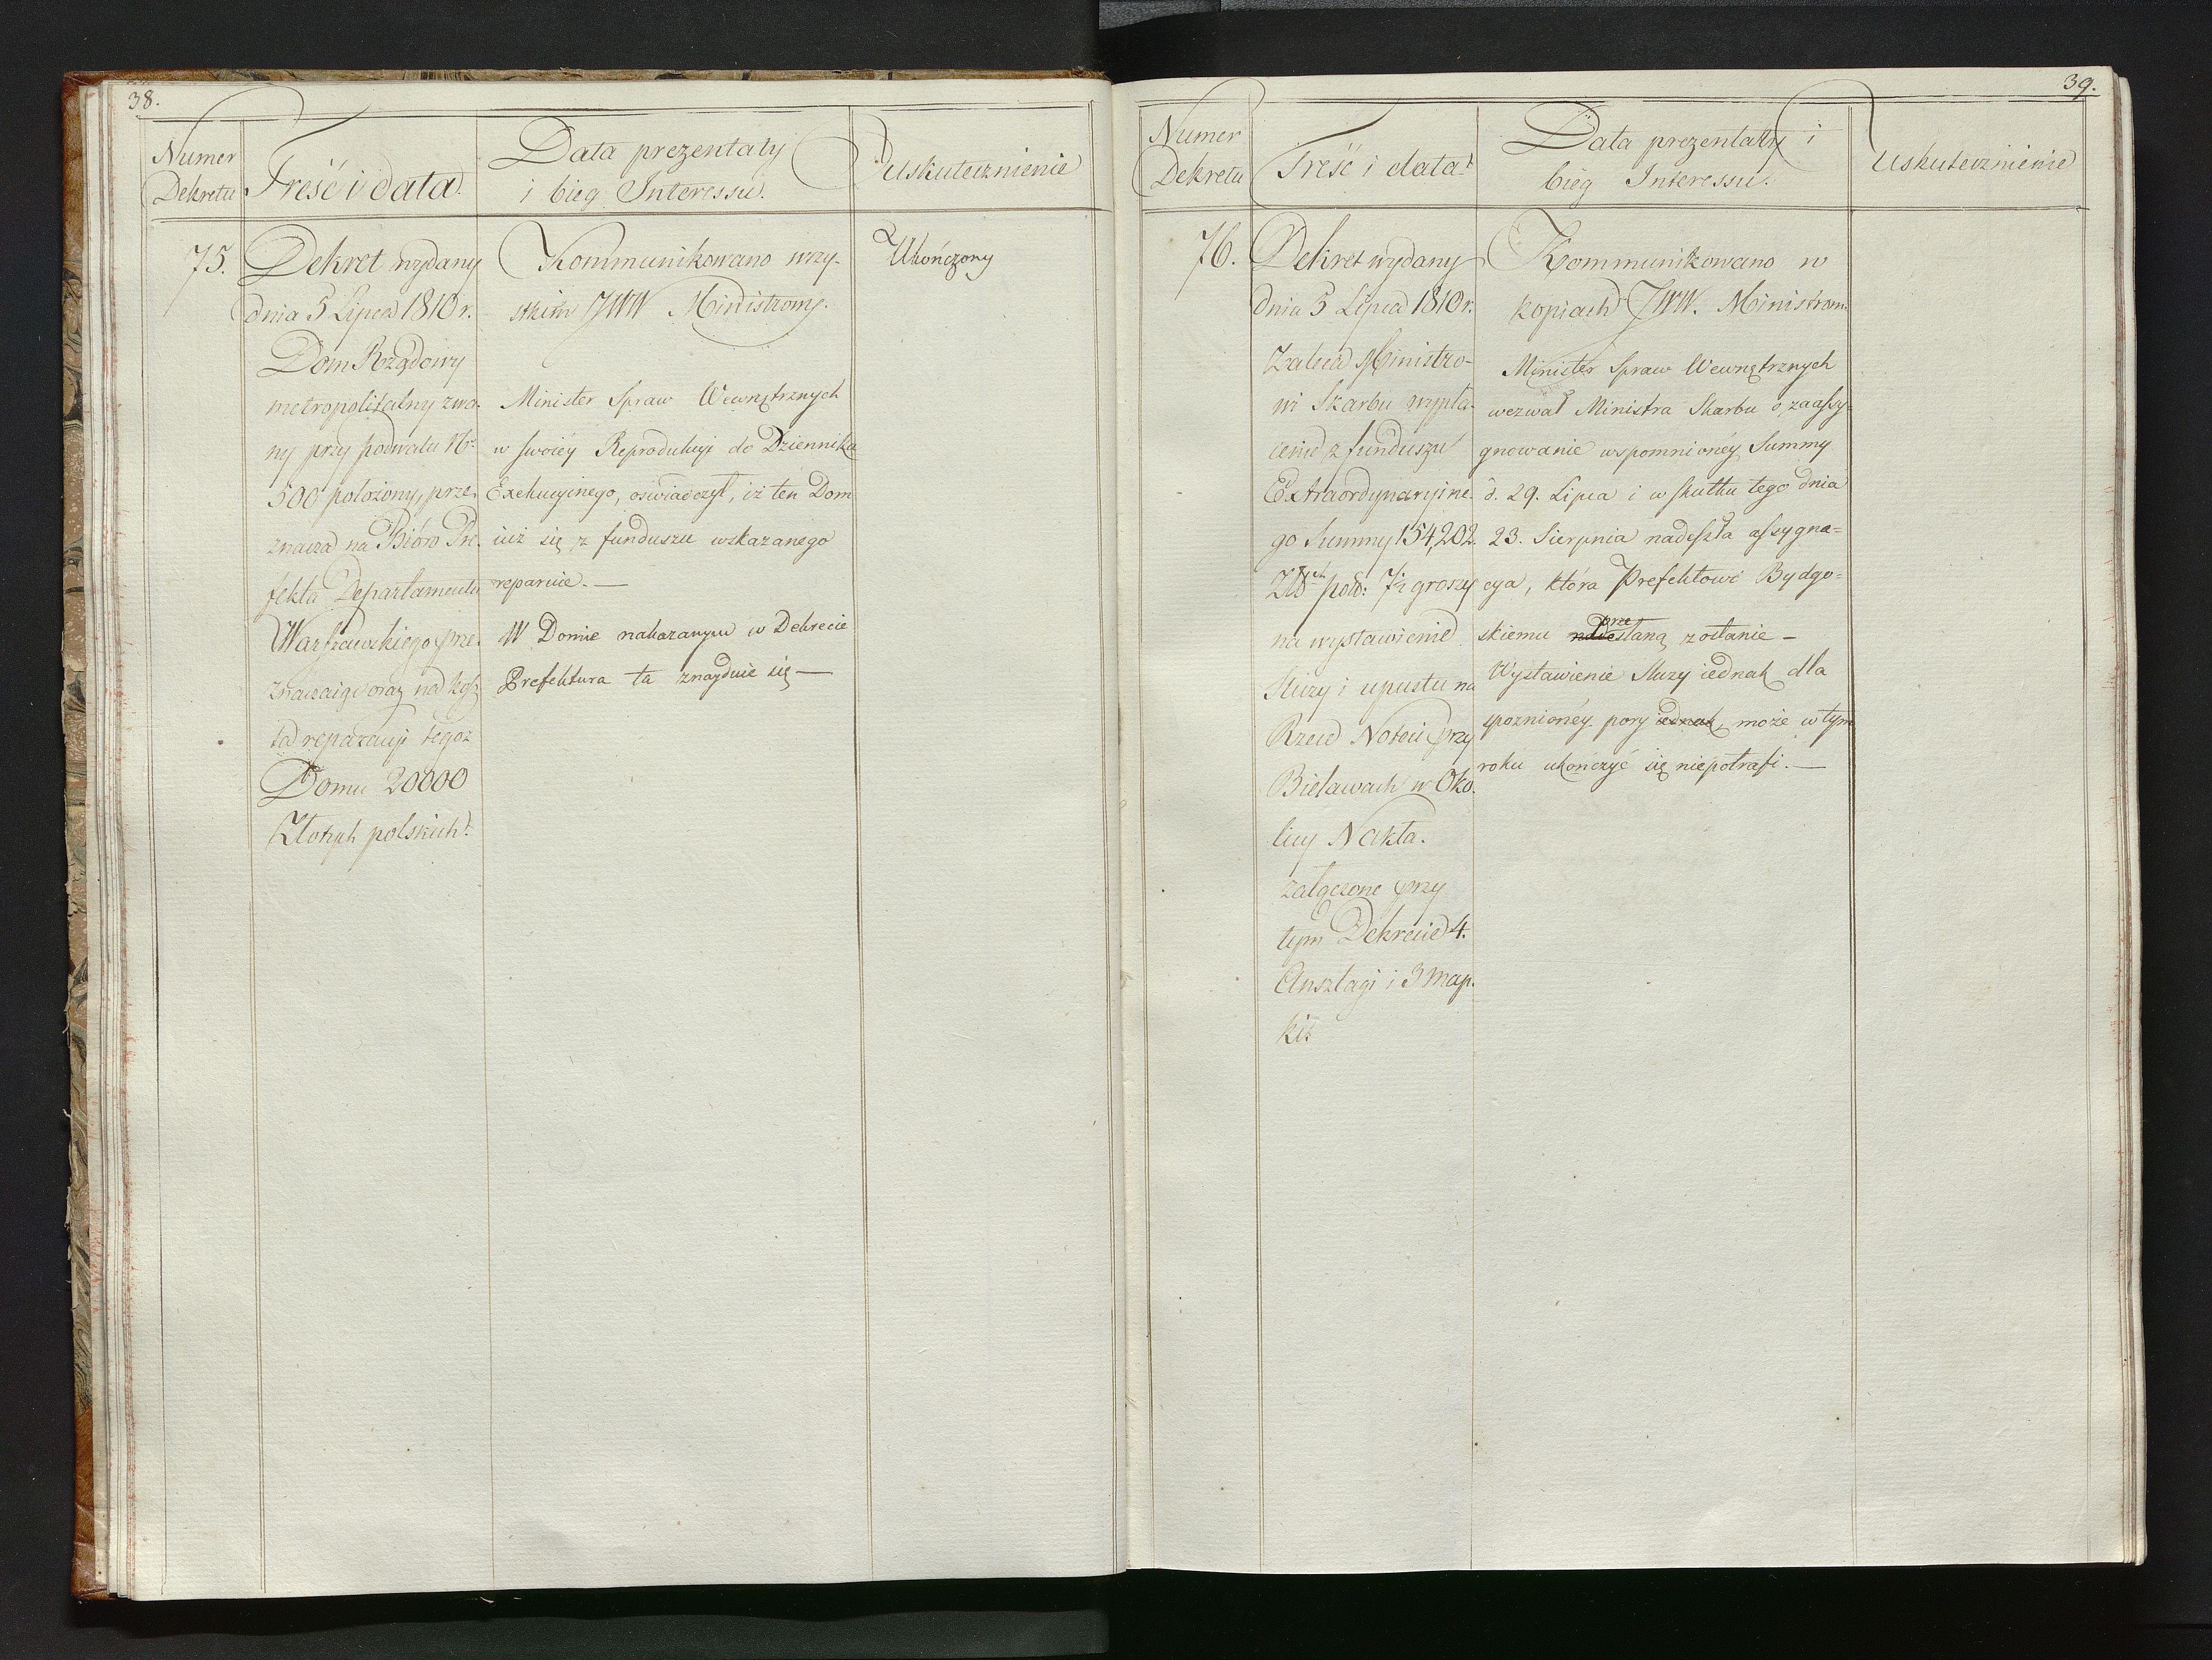 38.
Numer
Dekretu
Treść i data.
Data prezentaty
i bieg Interessu.
Uskutecznienie
75.
Dekret wydany
dnia 5 Lipca 1810 r.
Dom Rządowy
metropolitalny zwa-
ny przy podwalu Nr.
500 położony, prze-
znacza na Bióro Pre-
fekta Departamentu
Warszawskiego prze-
znaczaiąc oraz na kosz-
ta reparacyi tegoż
Domu 20000
Złotych polskich.
Kommunikowano wszy-
stkim JWW Ministrom.
Minister Spraw Wewnętrznych
w swoiéy Reprodukcyi do Dziennika
Exekucyinego, oświadczył, iż ten Dom
iuż się z funduszu wskazanego
reparuie. —
W Domie nakazanym w Dekrecie
Prefektura ta znayduie się —
Ukończony
39.
Numer
Dekretu
Treść i data.
Data prezentaty i
bieg Interessu.
Uskutecznienie
76.
Dekret wydany
dnia 5 Lipca 1810 r.
Zaleca Ministro-
wi Skarbu wypła-
cenie z funduszu
Extraordynaryine-
go Summy 154,202.
Złtch pols: 7½ groszy
na wystawienie
Sluzy i upustu na
Rzece Noteci przy
Bielawach w Oko-
licy Nakła.
załączone przy
tym Dekrecie 4.
Anszlagi i 3 map-
ki.
Kommunikowano w
kopiach JWW. Ministrom.
Minister Spraw Wewnętrznych
wezwał Ministra Skarbu o zaassy-
gnowanie wspomnionéy Summy
d. 29. Lipca i w skutku tego dnia
23. Sierpnia nadeszła assygna=
cya, która Prefektowi Bydgo=
prze
skiemu nadesłaną zostanie —
Wystawienie Sluzy iednak dla
spoznionéy pory iednak może w tym
roku ukończyć się niepotrafi. —